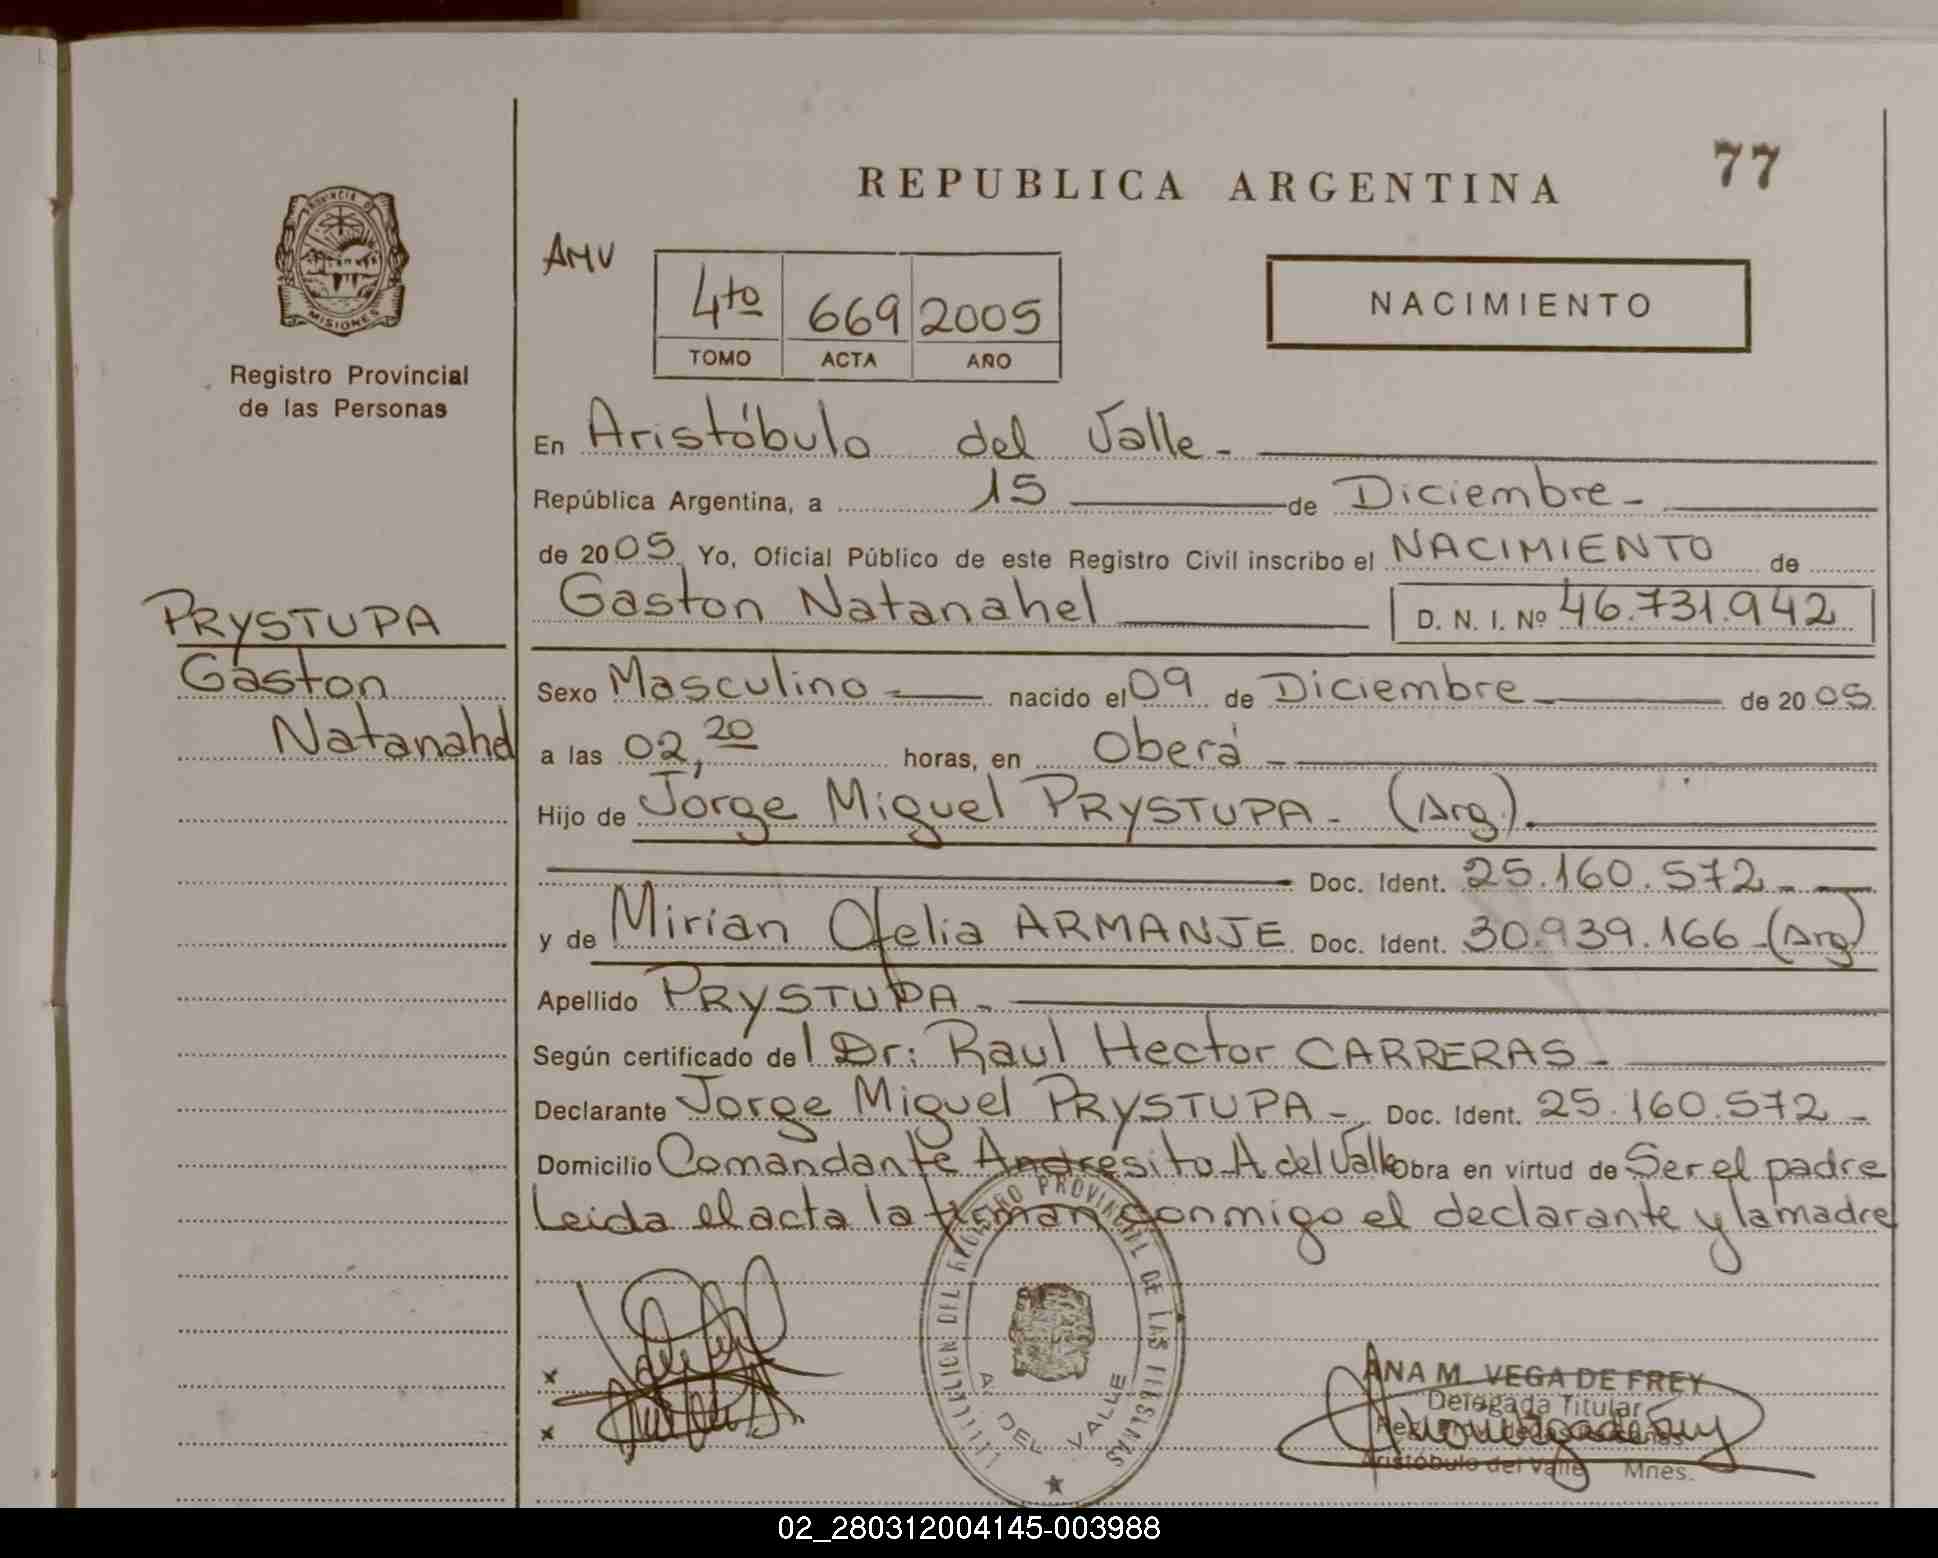 77
REPUBLICA ARGENTINA
PROVINCIA D
MISIONES
Registro Provincial
de las Personas
AMV
4to 669 2005
TOMO ACTA AÑO
NACIMIENTO
En Aristóbulo del Valle-
República Argentina, a 15 de Diciembre-
de 2005 Yo, Oficial Público de este Registro Civil inscribo el NACIMIENTO de
Gaston Natanahel D. N. I. Nº 46.731.942
PRYSTUPA
Gaston
Natanahel
Sexo Masculino nacido el 09 de Diciembre de 2005
a las 02,20 horas, en Oberá
Hijo de Jorge Miguel PRYSTUPA- (Arg).
Doc. Ident. 25.160.572-
y de Mirian Ofelia ARMANJE Doc. Ident. 30.939.166-(Arg)
Apellido PRYSTUPA-
Según certificado del Dr: Raul Hector CARRERAS-
Declarante Jorge Miguel PRYSTUPA- Doc. Ident. 25.160.572-
Domicilio Comandante Andresito-A del Valle Obra en virtud de Ser el padre
Leida el acta la firman conmigo el declarante y la madre
DEL REGISTRO PROVINCIAL DE LAS
A. DEL VALLE
x
x
ANA M. VEGA DE FREY
Delegada Titular
Aristóbulo del Valle Mnes.
02_280312004145-003988